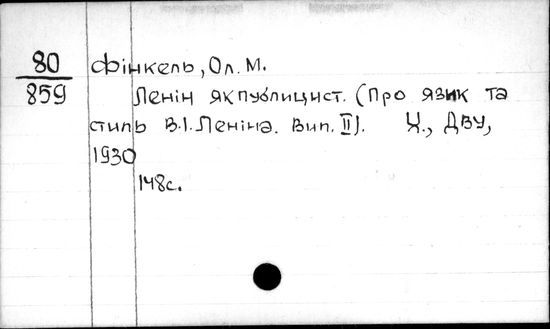 80 Фінкель, Ол. М.
859 Ленін як публицист. (Про язик та
стиль В.І. Леніна. Вип. II). Х., ДВУ,
1930
148с.